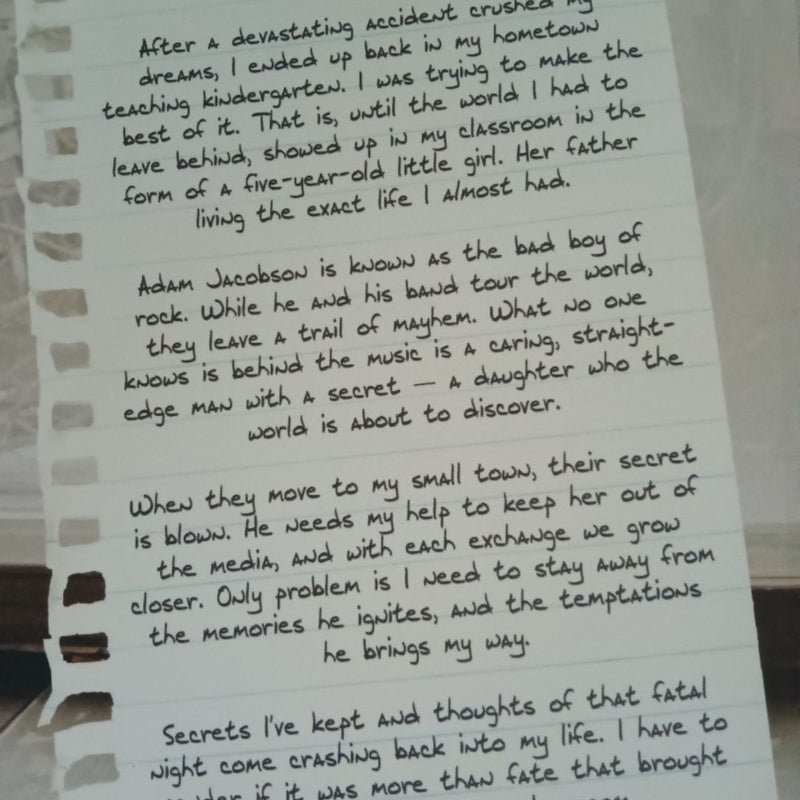 After a devastating accident crushed my
dreams, I ended up back in my hometown
teaching kindergarten. I was trying to make the
best of it. That is, until the world I had to
leave behind, showed up in my classroom in the
form of a five-year-old little girl. Her father
living the exact life I almost had.
Adam Jacobson is known as the bad boy of
rock. While he and his band tour the world,
they leave a trail of mayhem. What no one
knows is behind the music is a caring, straight-
edge man with a secret — a daughter who the
world is about to discover.
When they move to my small town, their secret
is blown. He needs my help to keep her out of
the media, and with each exchange we grow
closer. Only problem is I need to stay away from
the memories he ignites, and the temptations
he brings my way.
Secrets I've kept and thoughts of that fatal
night come crashing back into my life. I have to
if it was more than fate that brought